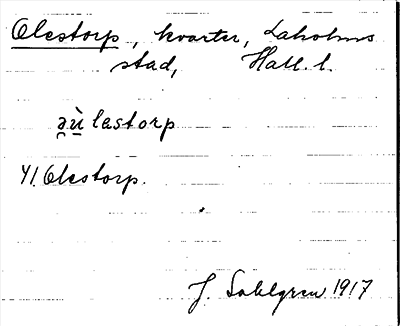 Olestorp, kvarter, Laholms
stad, Hall. l.
ə̯ù̱lastorp
Yl. Olestorp.
J. Sahlgren 1917